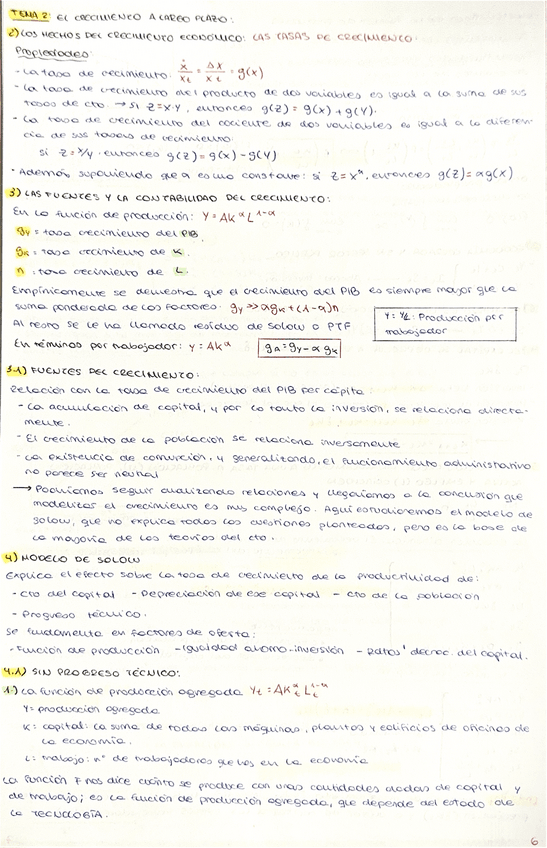 TEMA 2: EL CRECIMIENTO A LARGO PLAZO:
2) LOS HECHOS DEL CRECIMIENTO ECONÓMICO: LAS TASAS DE CRECIMIENTO.
Propiedades:
- La tasa de crecimiento: ẋ/x_t = Δx/x_t = g(x)
- La tasa de crecimiento del producto de dos variables es igual a la suma de sus
tasas de cto. → Si Z=X·Y, entonces g(Z) = g(X) + g(Y).
- La tasa de crecimiento del cociente de dos variables es igual a la diferen-
cia de sus tasas de crecimiento:
si Z = X/Y entonces g(Z) = g(X) - g(Y)
· Además suponiendo que α es una constante: si Z = X^α, entonces g(Z) = αg(X)
3) LAS FUENTES Y LA CONTABILIDAD DEL CRECIMIENTO:
En la función de producción: Y = AK^α L^1-α
gy = tasa crecimiento del PIB.
gk = tasa crecimiento de K.
n = tasa crecimiento de L.
Empíricamente se demuestra que el crecimiento del PIB es siempre mayor que la
suma ponderada de los factores: gy >> αgk + (1-α)n
Al resto se le ha llamado residuo de Solow o PTF
y = Y/L : Producción por
trabajador
En términos por trabajador: y = AK^α gA = gy - α gk
3.1) FUENTES DEL CRECIMIENTO:
Relación con la tasa de crecimiento del PIB per cápita:
- La acumulación de capital, y por lo tanto la inversión, se relaciona directa-
mente.
- El crecimiento de la población se relaciona inversamente
- La existencia de corrupción, y generalizando, el funcionamiento administrativo
no parece ser neutral
→ Podríamos seguir analizando relaciones y llegaríamos a la conclusión que
modelizar el crecimiento es muy complejo. Aquí estudiaremos el modelo de
Solow, que no explica todas las cuestiones planteadas, pero es la base de
la mayoría de las teorías del cto.
4) MODELO DE SOLOW
Explica el efecto sobre la tasa de crecimiento de la productividad de:
- Cto del capital - Depreciación de ese capital - cto de la población
- Progreso técnico.
Se fundamenta en factores de oferta:
- Función de producción - Igualdad ahorro-inversión - Rdtos decrec. del capital.
4.1) SIN PROGRESO TÉCNICO:
1) La función de producción agregada Y_t = AK_t^α L_t^1-α
Y = producción agregada
K = capital: la suma de todas las máquinas, plantas y edificios de oficinas de
la economía.
L = trabajo: nº de trabajadores que hay en la economía
La función F nos dice cuánto se produce con unas cantidades dadas de capital y
de trabajo; es la función de producción agregada, que depende del estado de
la TECNOLOGÍA.
6